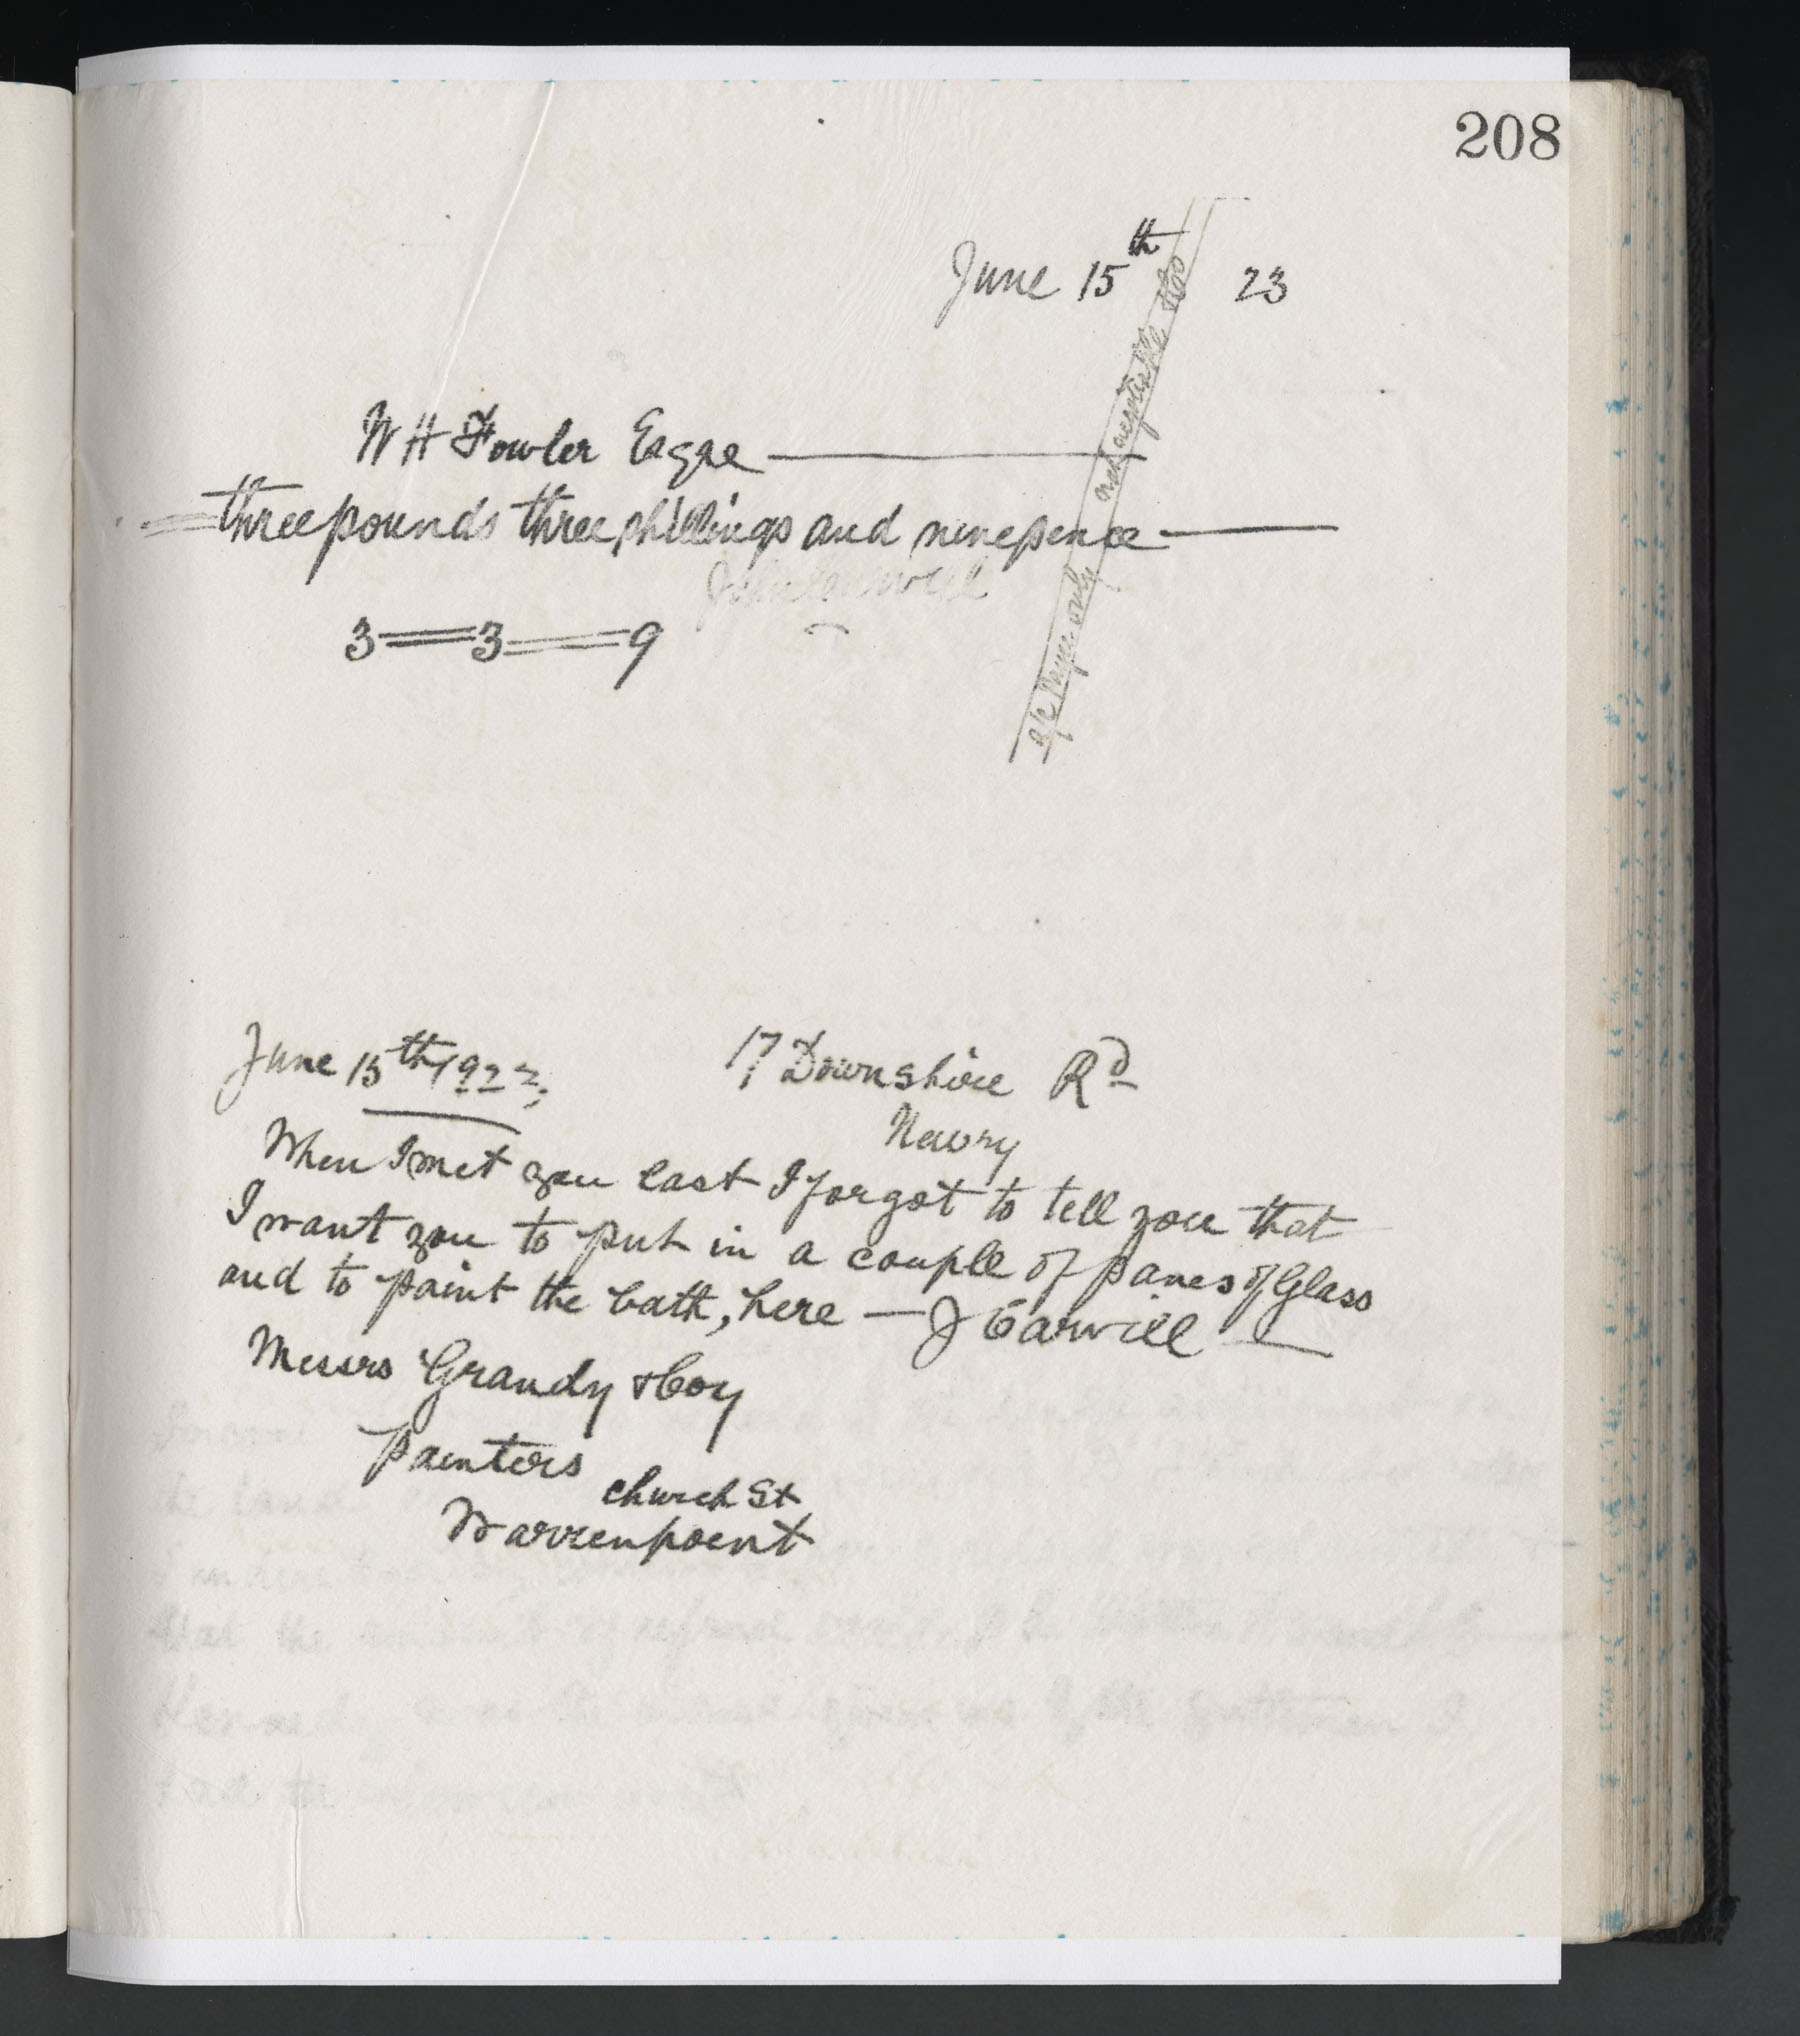 208
June 15th 23
W H Fowler Esqre
three pounds three shillings and ninepence
John Carvill
3 = 3 = 9
a/c Payee only not negotiable &Co
June 15th 1923, 17 Downshire Rd
Newry
When I met you last I forgot to tell you that
I want you to put in a couple of panes of Glass
and to paint the bath, here — J Carvill
Messrs Grandy & Coy
Painters
Church St
Warrenpoint